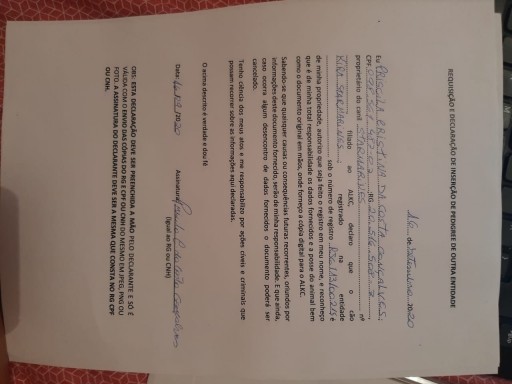 REQUISIÇÃO E DECLARAÇÃO DE INSERÇÃO DE PEDIGREE DE OUTRA ENTIDADE
16 de Setembro 2020
Eu PRISCILA CRISTINA DA COSTA GONÇALVES.
CPF RG
proprietário do canil STARMARINES nº
filiado ao ALKC declaro que o cão
KIRA STARMARINES registrado na entidade
sob o número de registro é
de minha propriedade, autorizo que seja feito o registro em meu nome, e reconheço
que é de minha total responsabilidade os dados fornecidos e a posse do animal bem
como o documento original em mãos, onde forneço a cópia digital para o ALKC.
Sabendo-se que quaisquer causas ou consequências futuras recorrentes, oriundos por
informações deste documento fornecido, serão de minha responsabilidade. E que ainda,
caso ocorra algum desencontro de dados fornecidos o documento poderá ser
cancelado.
Tenho ciência dos meus atos e me responsabilizo por ações cíveis e criminais que
possam recorrer sobre as informações aqui declaradas.
O acima descrito é verdade e dou fé
Data: 16/09/2020 Assinatura
(igual ao RG ou CNH)
OBS: ESTA DECLARAÇÃO DEVE SER PREENCHIDA A MÃO PELO DECLARANTE E SÓ É
VÁLIDA COM O ENVIO DAS CÓPIAS DO RG E CPF OU CNH DO MESMO EM JPEG, PNG OU
FOTO. A ASSINATURA DO DECLARANTE DEVE SER A MESMA QUE CONSTA NO RG CPF
OU CNH.